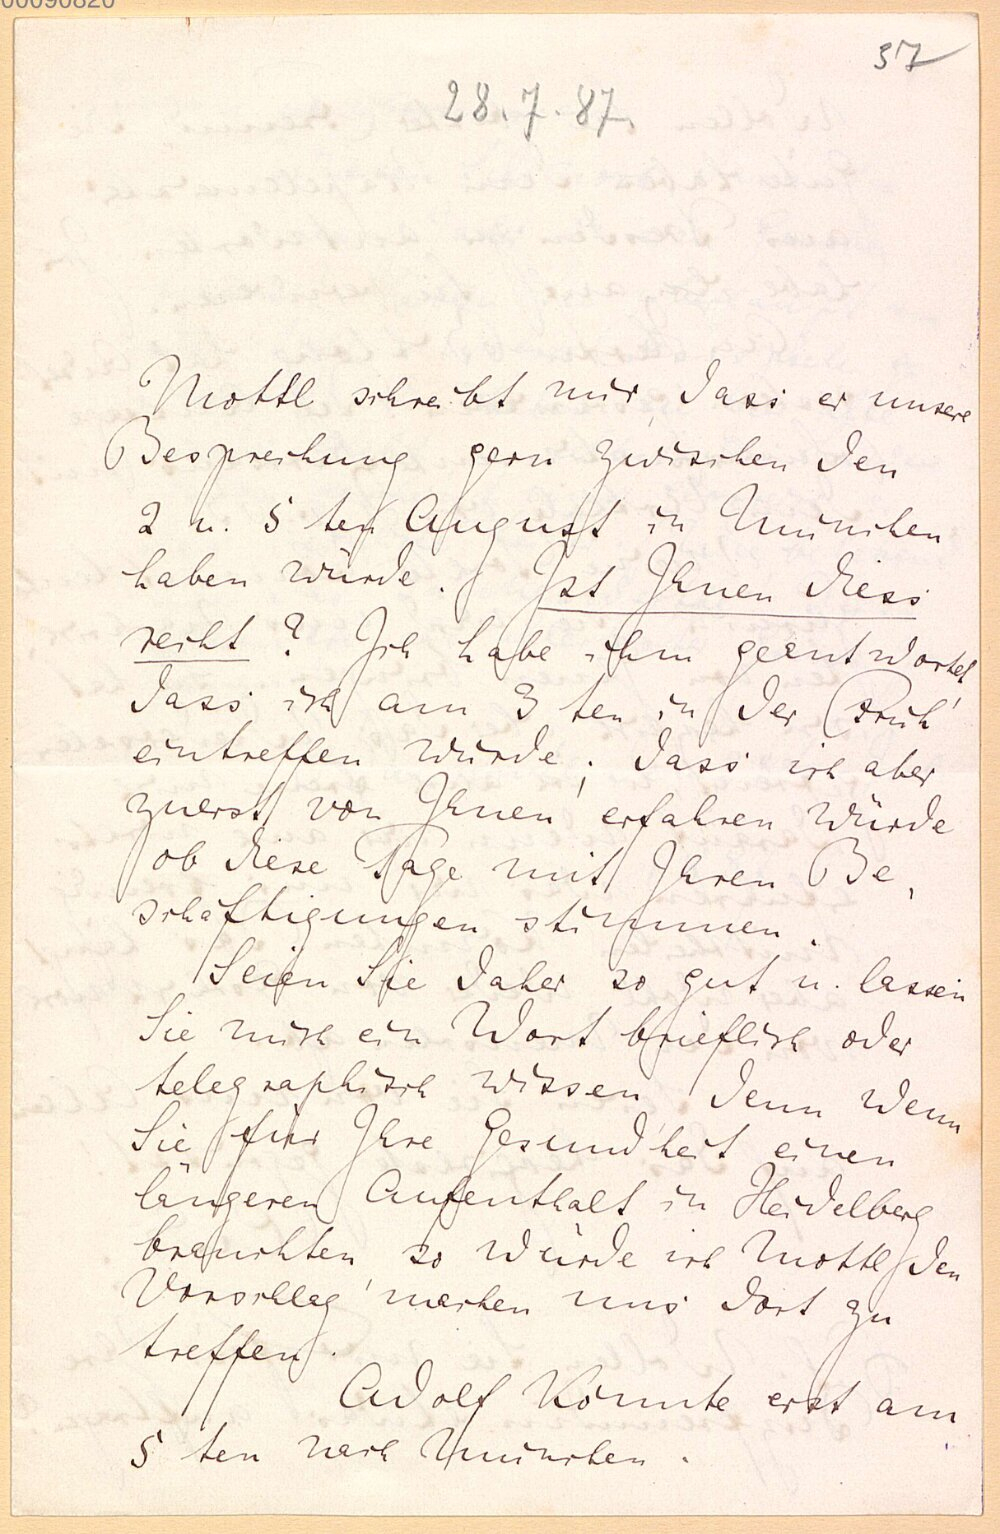 00090820
37
28.7.87.
Mottl schreibt mir, dass er unsere
Besprechung gern zwischen den
2 u. 5 ten August in München
haben würde. Ist Ihnen diess
recht? Ich habe ihm geantwortet,
dass ich am 3 ten in der Früh
eintreffen würde; dass ich aber
zuerst von Ihnen erfahren würde
ob diese Tage mit Ihren Be,
schäftigungen stimmen.
Seien Sie daher so gut u. lassen
Sie mich ein Wort brieflich oder
telegraphisch wissen, denn wenn
Sie für Ihre Gesundheit einen
längeren Aufenthalt in Heidelberg
brauchten so würde ich Mottl den
Vorschlag machen uns dort zu
treffen.
Adolf könnte erst am
5 ten nach München.